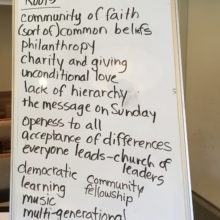 Roots
community of faith
(sort of) common beliefs
philanthropy
charity and giving
unconditional love
lack of hierarchy
the message on Sunday
openess to all
acceptance of differences
everyone leads-church of
leaders
democratic community
learning fellowship
music
multi-generational